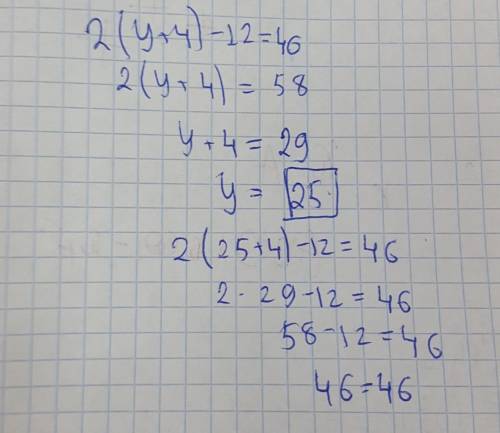 2(y+4)-12=46
2(y+4)=58
y+4=29
y=25
2(25+4)-12=46
2·29-12=46
58-12=46
46=46